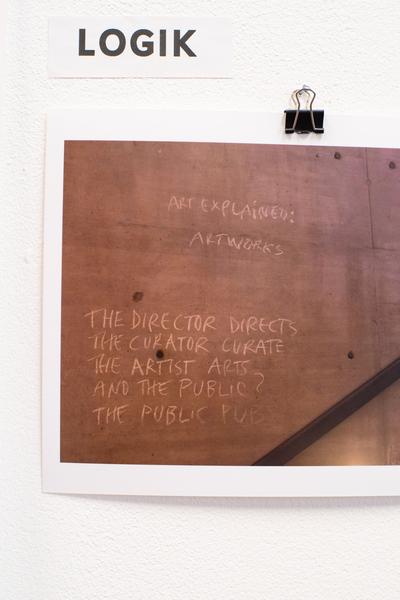 LOGIK
ART EXPLAINED:
ARTWORKS
THE DIRECTOR DIRECTS
THE CURATOR CURATE
THE ARTIST ARTS
AND THE PUBLIC?
THE PUBLIC PUB